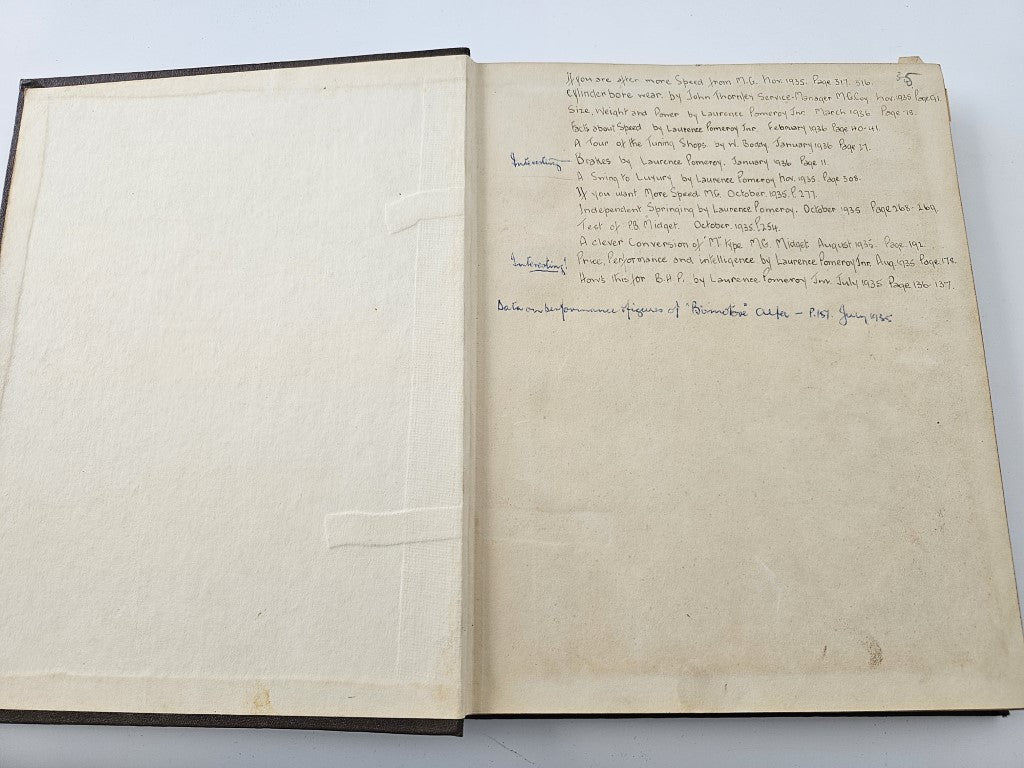 If you are after more Speed from M.G. Nov. 1935. Page 317. 316.
Cylinder bore wear. by John Thornley Service-Manager M.G. Coy. Nov. 1935 Page 91.
Size, Weight and Power by Laurence Pomeroy Jnr. March 1936 Page 18.
Facts about Speed by Laurence Pomeroy Jnr. February 1936 Page 40-41.
A Tour of the Tuning Shops. by W. Boddy. January 1936 Page 27.
Interesting Brakes by Laurence Pomeroy. January 1936 Page 11.
A Swing to Luxury by Laurence Pomeroy Nov. 1935. Page 308.
If you want More Speed. MG. October. 1935. P. 277.
Independent Springing by Laurence Pomeroy. October 1935 Page 268-269.
Test of P.B. Midget. October. 1935. P. 254.
A clever Conversion of "M" type M.G. Midget August 1935. Page. 192.
Interesting! Price, Performance and intelligence by Laurence Pomeroy Jnr. Aug. 1935 Page. 178.
How's this for B.H.P. by Laurence Pomeroy Jnr. July 1935 Page. 136-137.
Data on performance & figures of "Bimotore" Alfa - P. 151. July 1935